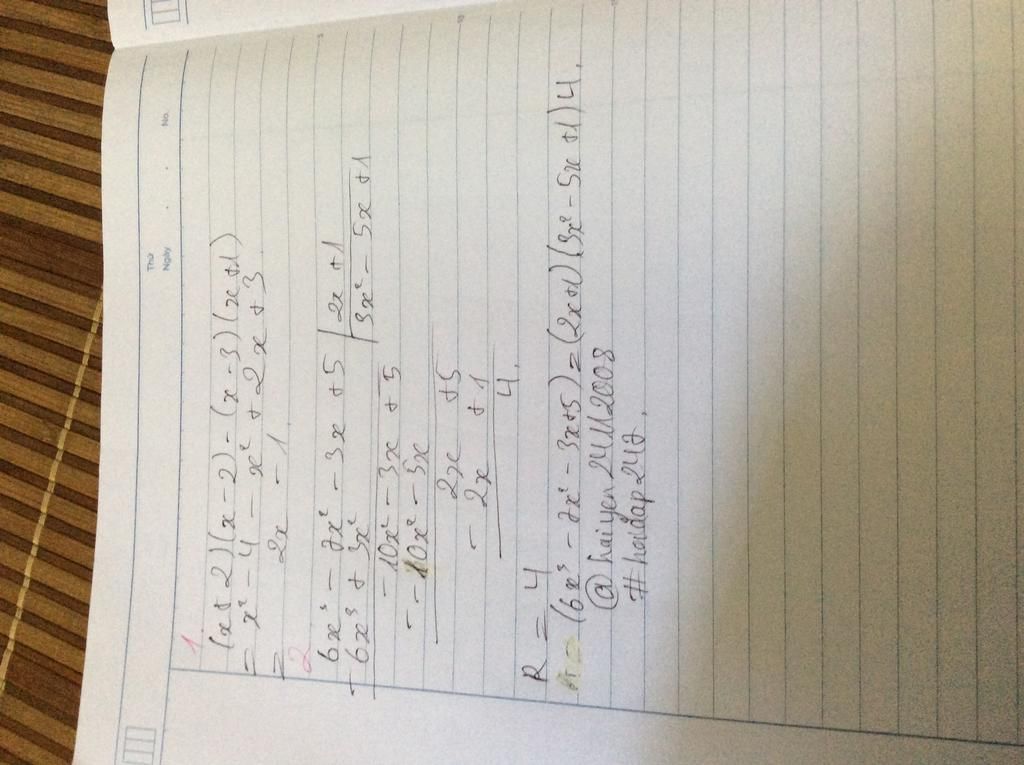 Thứ
Ngày . . . No.
1
(x+2)(x-2)-(x-3)(x+1)
= x² - 4 - x² + 2x + 3
= 2x - 1
2
6x³ - 7x² - 3x + 5 | 2x + 1
- 6x³ + 3x² | 3x² - 5x + 1
- 10x² - 3x + 5
- - 10x² - 5x
2x + 5
- 2x + 1
4.
R = 4
(6x³ - 7x² - 3x + 5) = (2x+1)(3x² - 5x + 1) 4.
@haiyen24112008
#hoidap247.